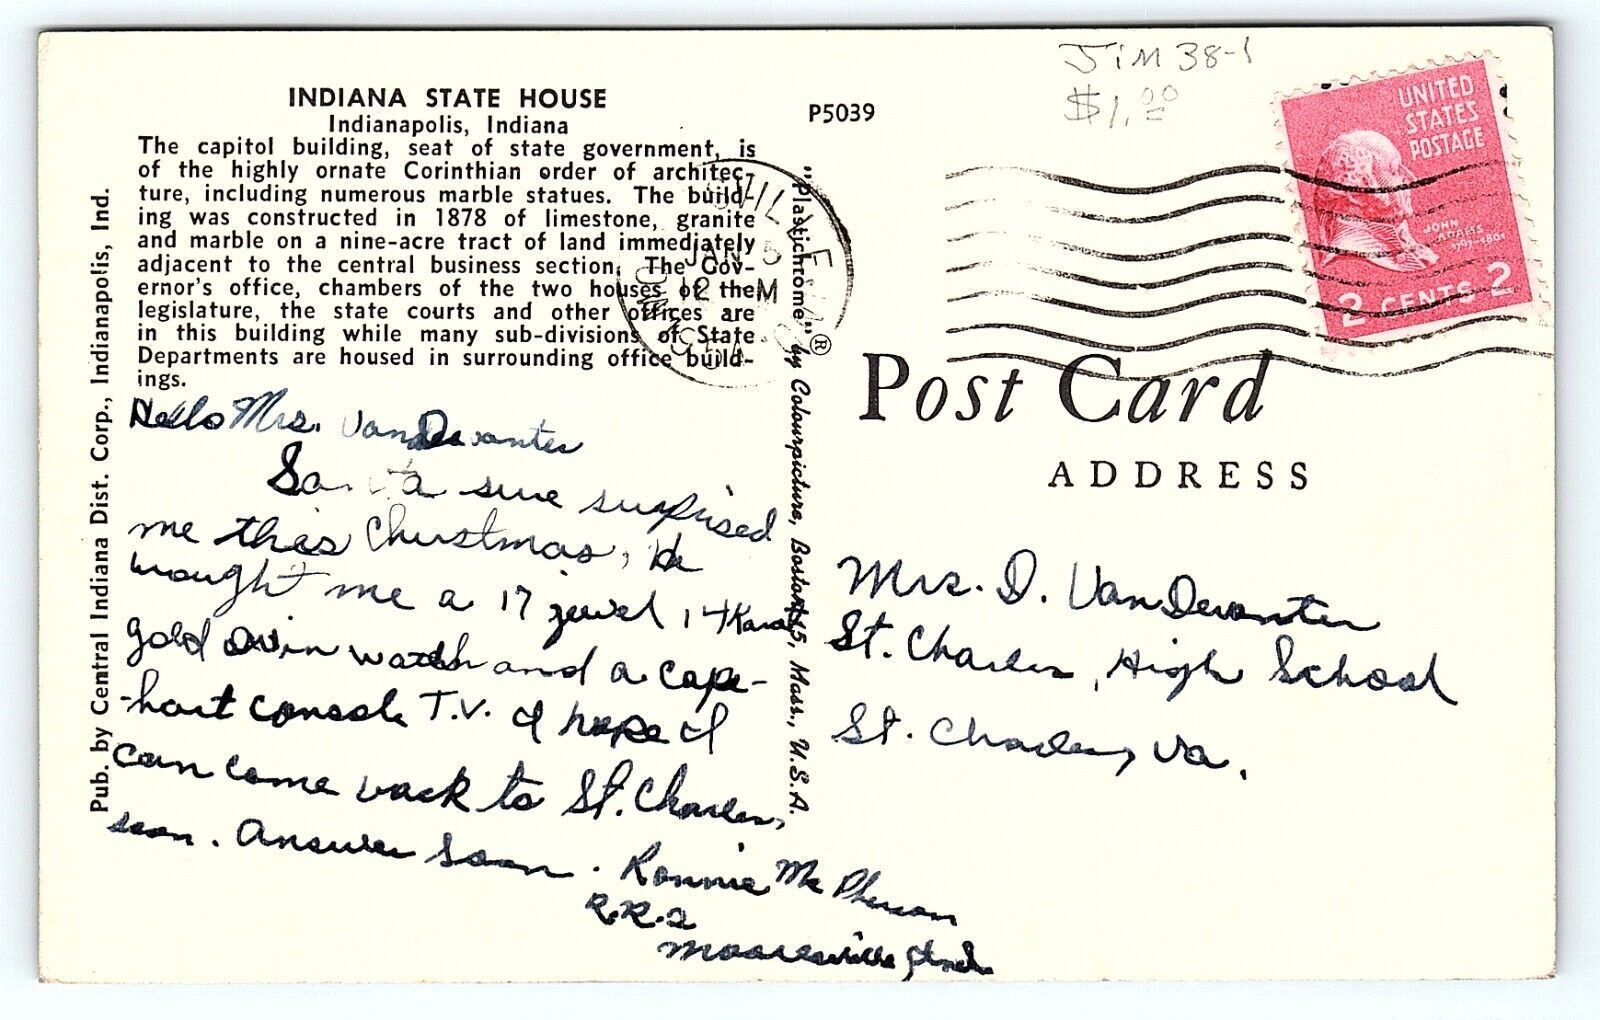 INDIANA STATE HOUSE
Indianapolis, Indiana
The capitol building, seat of state government, is
of the highly ornate Corinthian order of architec-
ture, including numerous marble statues. The build-
ing was constructed in 1878 of limestone, granite
and marble on a nine-acre tract of land immediately
adjacent to the central business section. The Gov-
ernor's office, chambers of the two houses of the
legislature, the state courts and other offices are
in this building while many sub-divisions of State
Departments are housed in surrounding office build-
ings.
Hello Mrs. VanDevanter
Santa sure surprised
me this Christmas, He
brought me a 17 jewel 14 Karat
gold watch and a cape-
-hart console T.V. I hope I
can come back to St. Charles,
soon. Answer soon. Ronnie McPherson
R.R.2
Mooresville, Ind.
Pub. by Central Indiana Dist. Corp., Indianapolis, Ind.
"Plastichrome"® by Colourpicture, Boston 15, Mass., U.S.A.
P5039
JAN 5
12 M
JiM 38-1
$1.00
UNITED
STATES
POSTAGE
JOHN
ADAMS
1797-1801
2 CENTS 2
Post Card
ADDRESS
Mrs. D. VanDevanter
St. Charles, High School
St. Charles, Va.